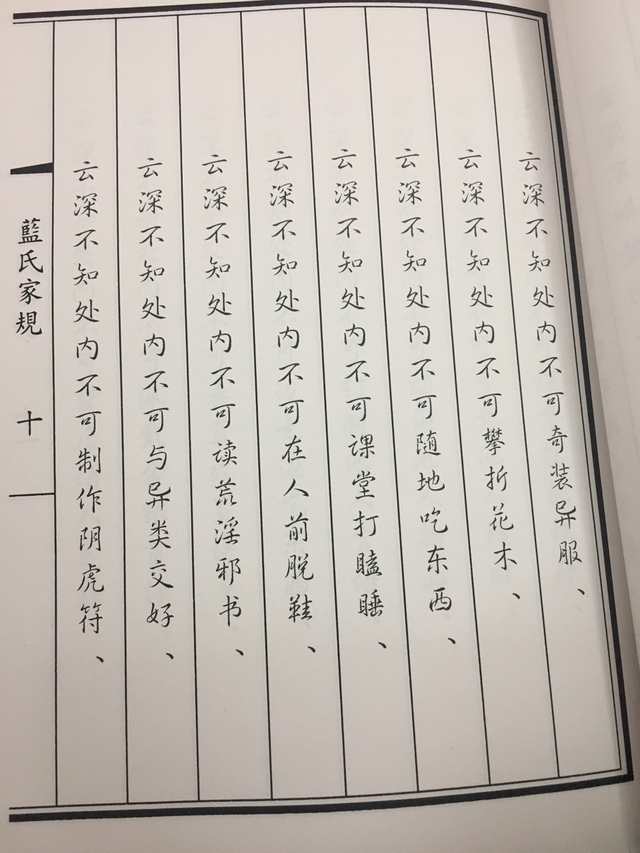 云深不知处内不可奇装异服、
云深不知处内不可攀折花木、
云深不知处内不可随地吃东西、
云深不知处内不可课堂打瞌睡、
云深不知处内不可在人前脱鞋、
云深不知处内不可读荒淫邪书、
云深不知处内不可与异类交好、
云深不知处内不可制作阴虎符、
藍氏家規
十